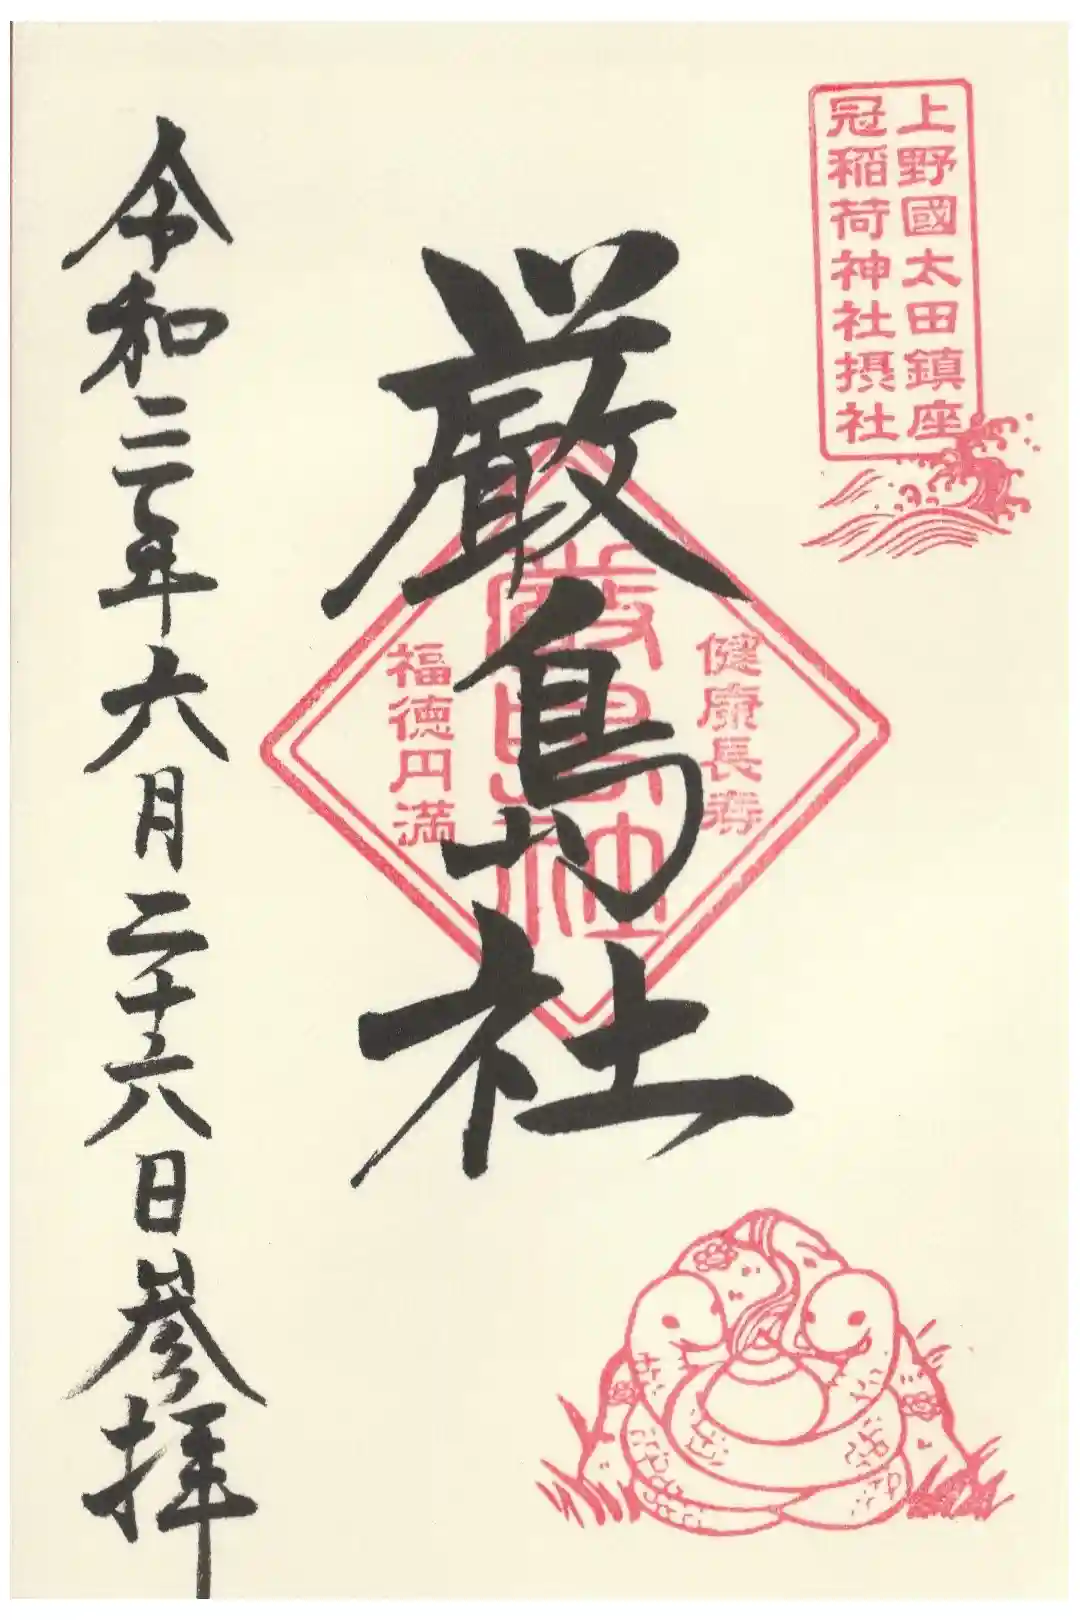 上野國太田鎮座
冠稲荷神社摂社
健康長寿
厳島社
厳島社
福徳円満
令和二年六月二十六日参拝